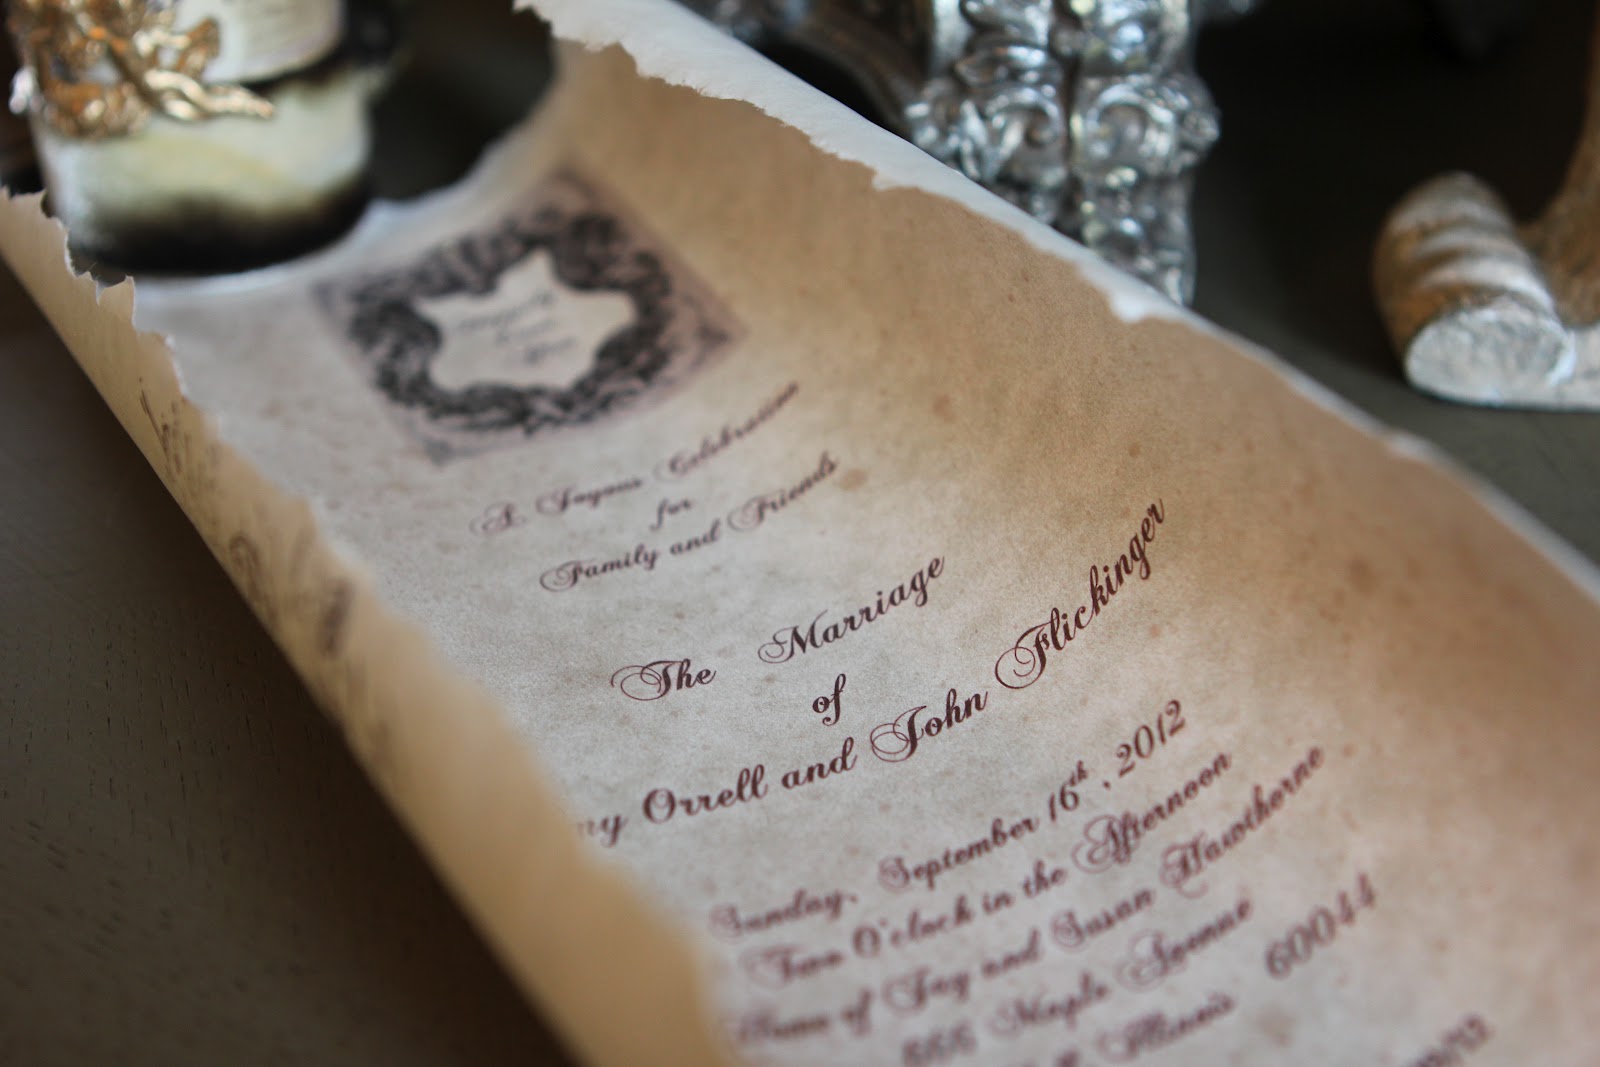 A Joyous Celebration
for
Family and Friends
The Marriage
of
my Orrell and John Flickinger
Sunday, September 16th, 2012
Two O'clock in the Afternoon
Home of Jay and Susan Hawthorne
Maple Avenue
Illinois 60044